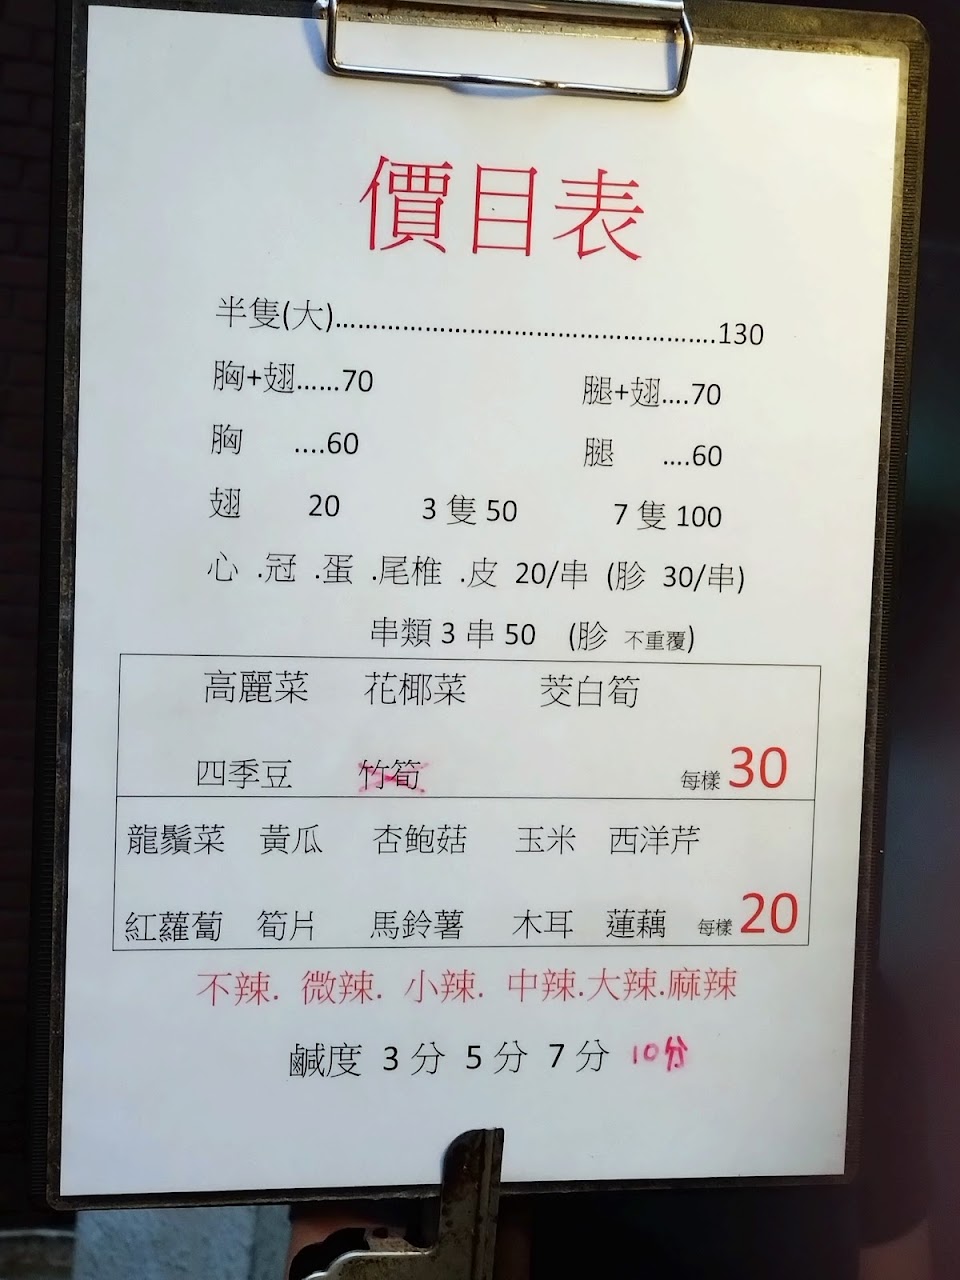 價目表
半隻(大)....................................................130
胸+翅......70 腿+翅....70
胸 ....60 腿 ....60
翅 20 3隻50 7隻100
心 .冠 .蛋 .尾椎 .皮 20/串 (胗 30/串)
串類3串50 (胗 不重覆)
高麗菜 花椰菜 茭白筍
四季豆 竹筍 每樣30
龍鬚菜 黃瓜 杏鮑菇 玉米 西洋芹
紅蘿蔔 筍片 馬鈴薯 木耳 蓮藕 每樣20
不辣. 微辣. 小辣. 中辣.大辣.麻辣
鹹度 3分 5分 7分 10分